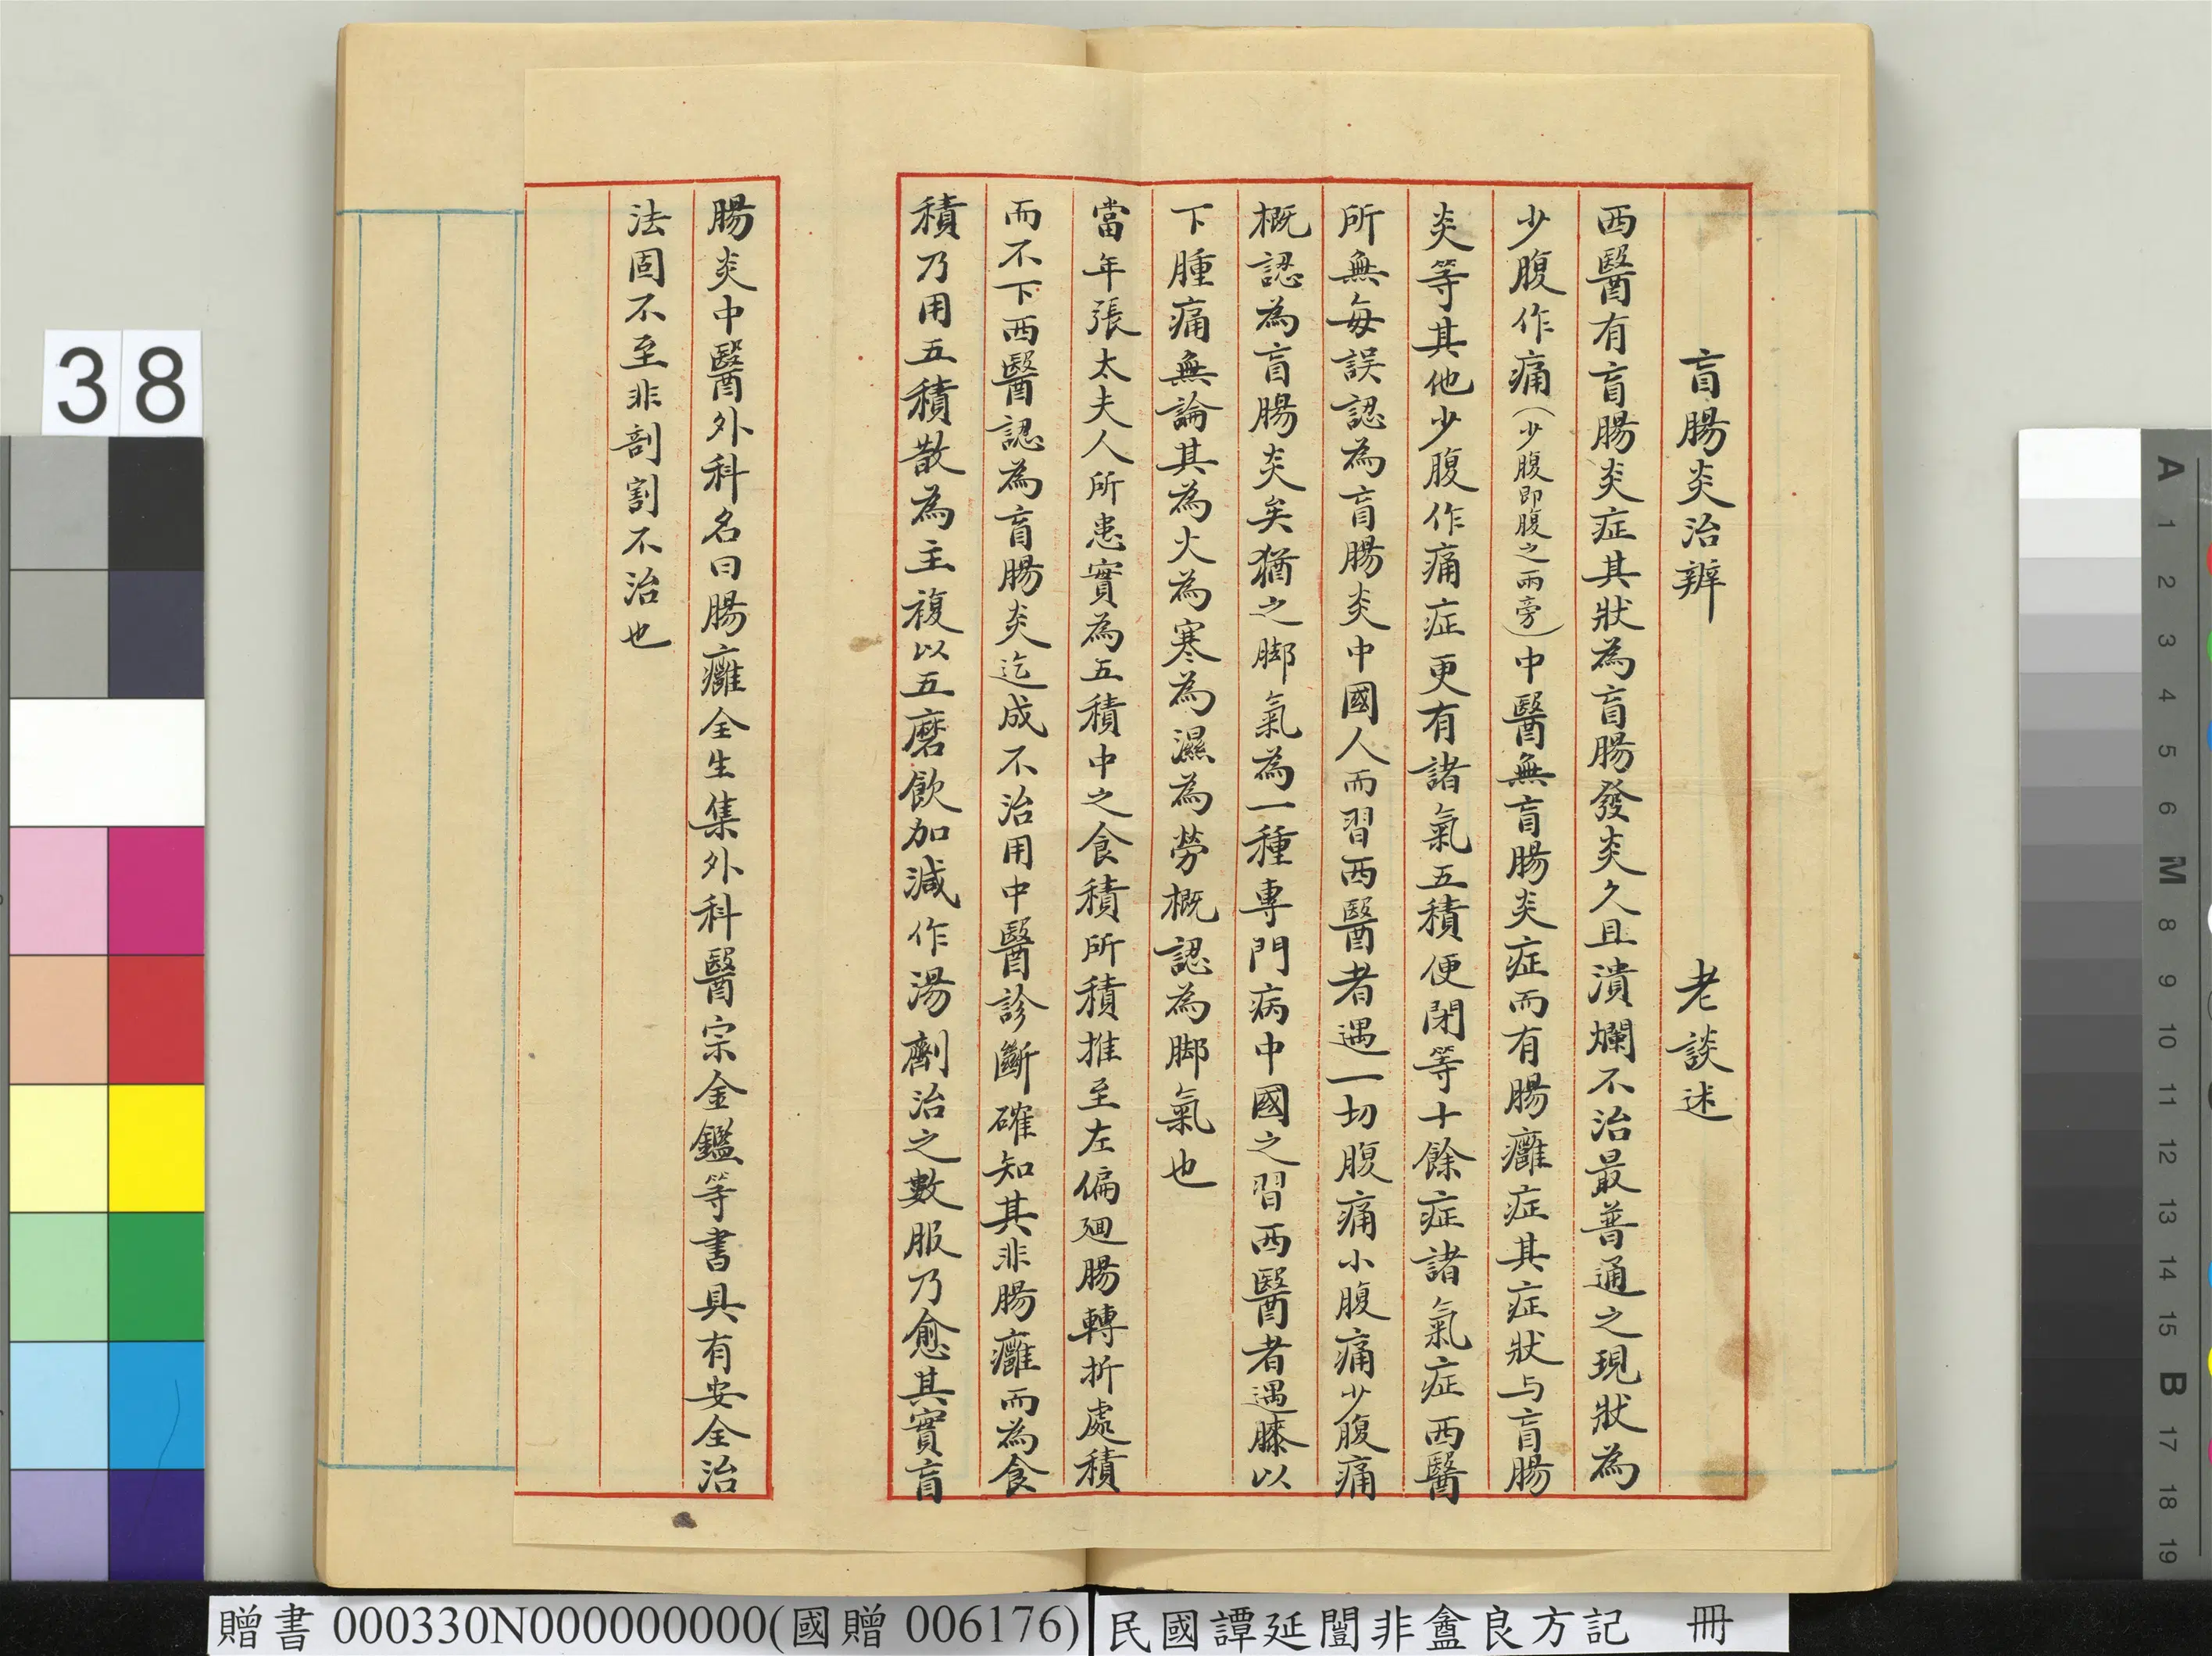 盲腸炎治辨　老談述
西醫有盲腸炎症其狀為盲腸發炎久且潰爛不治最普通之現狀為
少腹作痛(少腹即腹之兩旁)中醫無盲腸炎症而有腸癰症其症狀与盲腸
炎等其他少腹作痛症更有諸氣五積便閉等十餘症諸氣症西醫
所無每誤認為盲腸炎中國人而習西醫者遇一切腹痛小腹痛少腹痛
概認為盲腸炎矣猶之脚氣為一種專門病中國之習西醫者遇膝以
下腫痛無論其為火為寒為濕為勞概認為脚氣也
當年張太夫人所患實為五積中之食積所積推至左偏廻腸轉折處積
而不下西醫認為盲腸炎迄成不治用中醫診斷確知其非腸癰而為食
積乃用五積散為主複以五磨飲加減作湯劑治之數服乃愈其實盲
腸炎中醫外科名曰腸癰全生集外科醫宗金鑑等書具有安全治
法固不至非剖割不治也
38
贈書 000330N000000000(國贈 006176)
民國譚延闓非盦良方記 冊
A 1 2 3 4 5 6 M 8 9 10 11 12 13 14 15 B 17 18 19